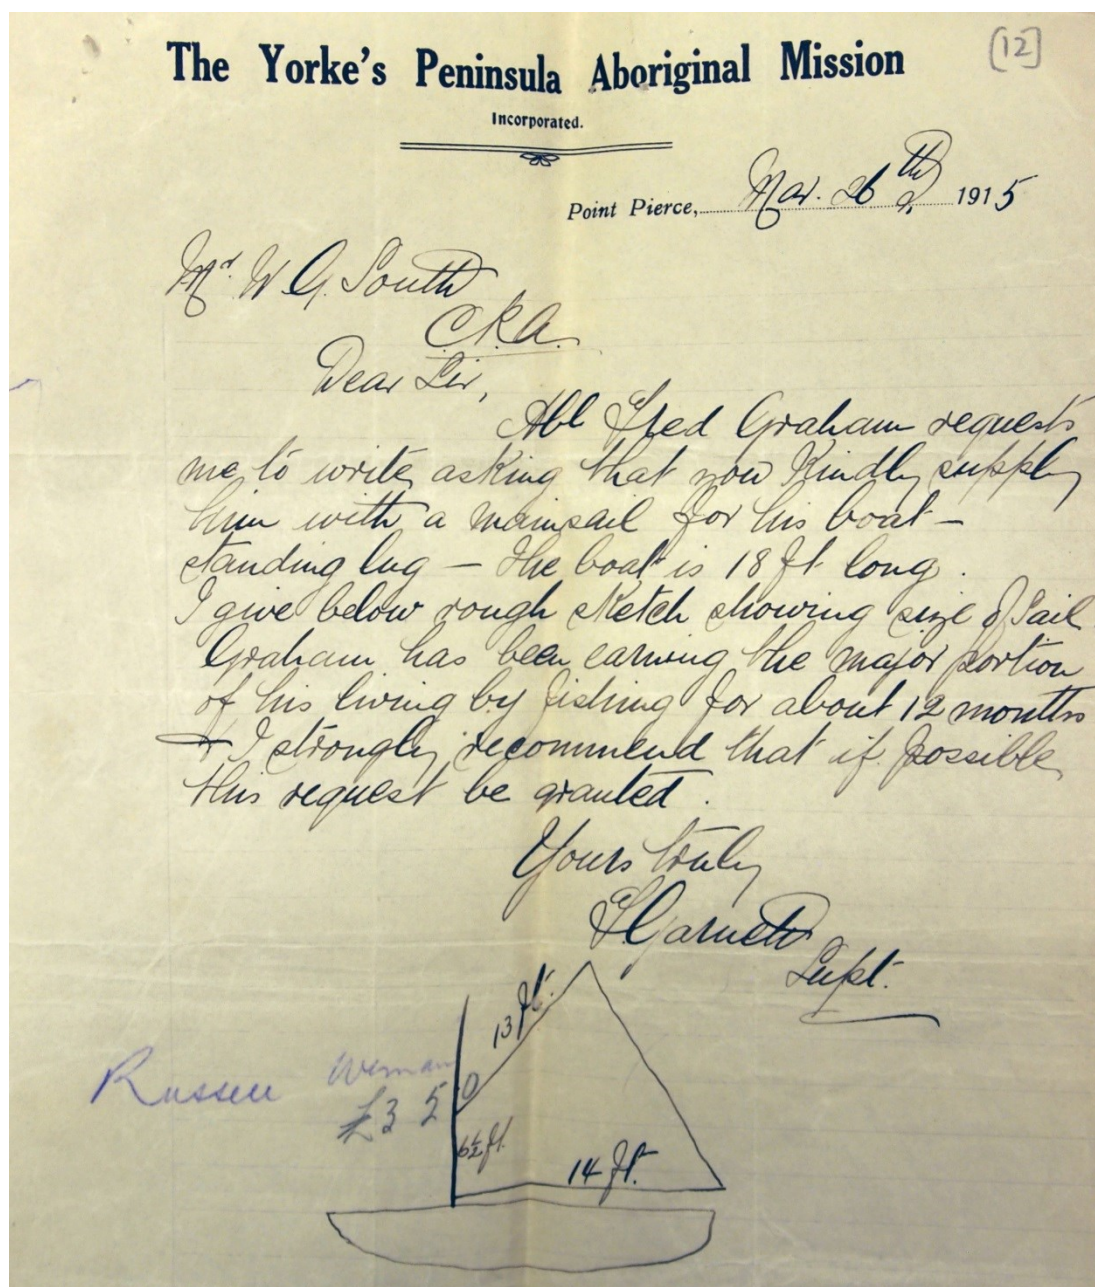 [12]
The Yorke's Peninsula Aboriginal Mission
Incorporated.
Point Pierce, Mar. 26th 1915
Mr. W. G. South
C.P.A.
Dear Sir,
Abl Fred Graham requests
me to write asking that you Kindly supply
him with a mainsail for his boat –
standing lug – the boat is 18 ft long.
I give below rough sketch showing size of Sail
Graham has been earning the major portion
of his living by fishing for about 12 months
+ I strongly recommend that if possible
this request be granted.
Yours truly
F Garnett
Supt.
13 ft.
Russell
£3 5 0
6½ ft.
14 ft.